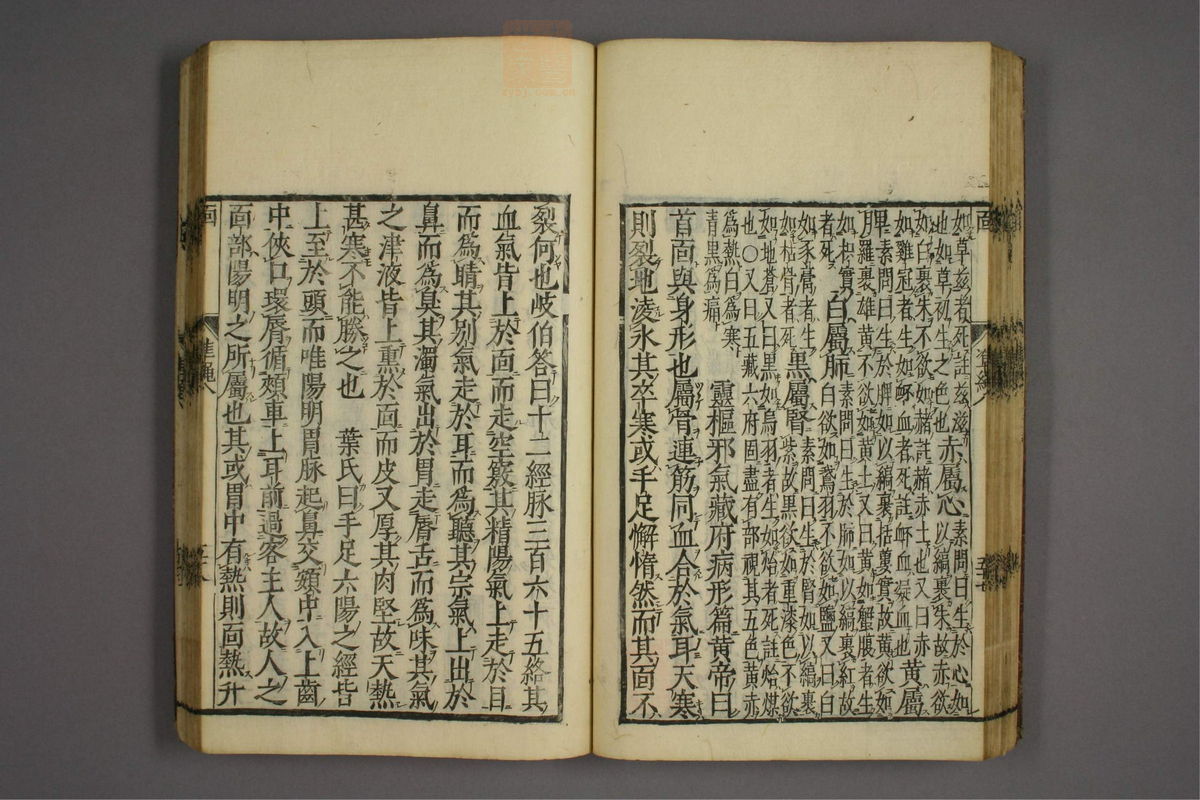 如草玆者死註玆滋
也如草初生之色也
赤屬心
素問曰生於心如
以縞裹朱故赤欲
如白裹朱不欲如赭註赭赤土也又曰赤
如雞冠者生如衃血者死註衃血凝血也
黃屬
脾
素問曰生於脾如以縞裹括蔞實故黃欲如
羅裹雄黃不欲如黃土又曰黃如蟹腹者生
如枳實
者死
白屬肺
素問曰生於肺如以縞裹紅故
白欲如鵞羽不欲如鹽又曰白
如豕膏者生
如枯骨者死
黒屬腎
素問曰生於腎如以縞裹
紫故黒欲如重漆色不欲
如地蒼又曰黒如烏羽者生如炲者死註炲煤
也○又曰五藏六府固盡有部視其五色黃赤
爲熱白爲寒
青黒爲痛
靈樞邪氣藏府病形篇黃帝曰
首面與身形也屬骨連筋同血合於氣耳天寒
則裂地凌氷其卒寒或手足懈惰然而其面不
裂何也岐伯答曰十二經脉三百六十五絡其
血氣皆上於面而走空竅其精陽氣上走於目
而爲睛其别氣走於耳而爲聽其宗氣上出於
鼻而爲臭其濁氣出於胃走唇舌而爲味其氣
之津液皆上熏於面而皮又厚其肉堅故天熱
甚寒不能勝之也 葉氏曰手足六陽之經皆
上至於頭而唯陽明胃脉起鼻交頞中入上齒
中俠口環唇循頰車上耳前過客主人故人之
面部陽明之所屬也其或胃中有熱則面熱升
面